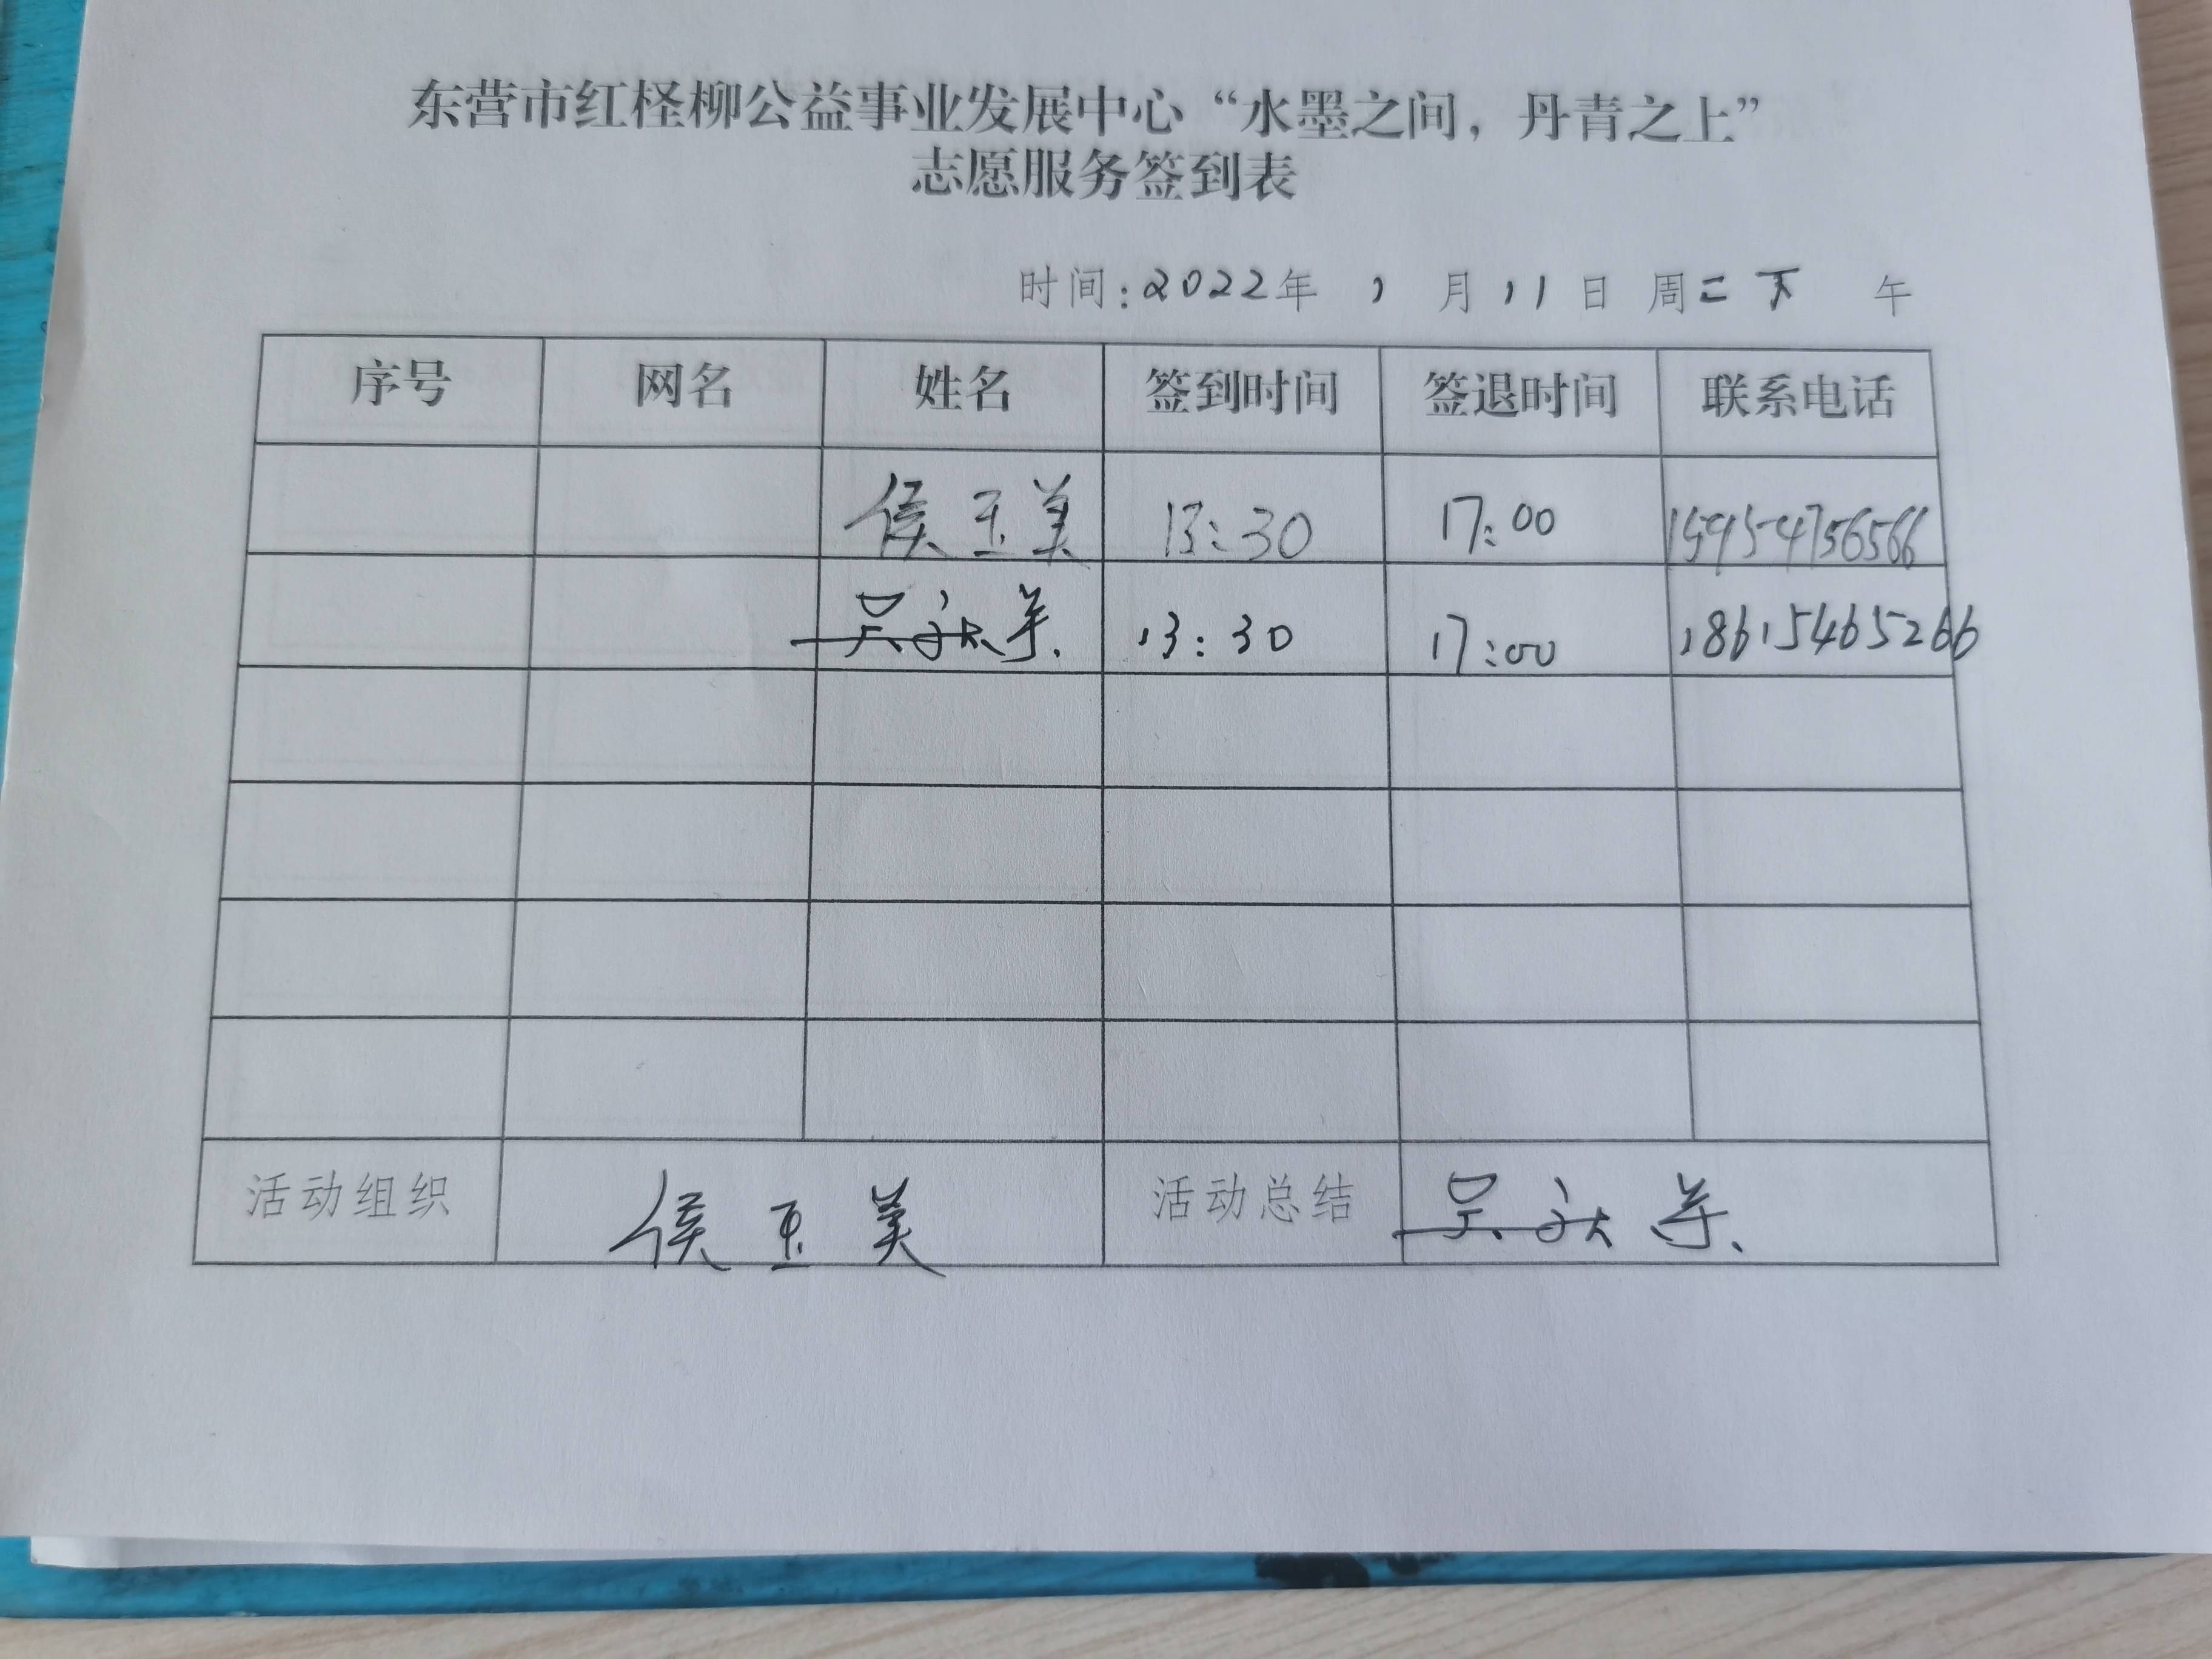 东营市红柽柳公益事业发展中心“水墨之间，丹青之上”
志愿服务签到表
时间：2022年 1 月 11 日 周二 下 午
序号 网名 姓名 签到时间 签退时间 联系电话
侯玉美 13:30 17:00 15954756566
吴 13:30 17:00 18615465266
活动组织 侯玉美 活动总结 吴